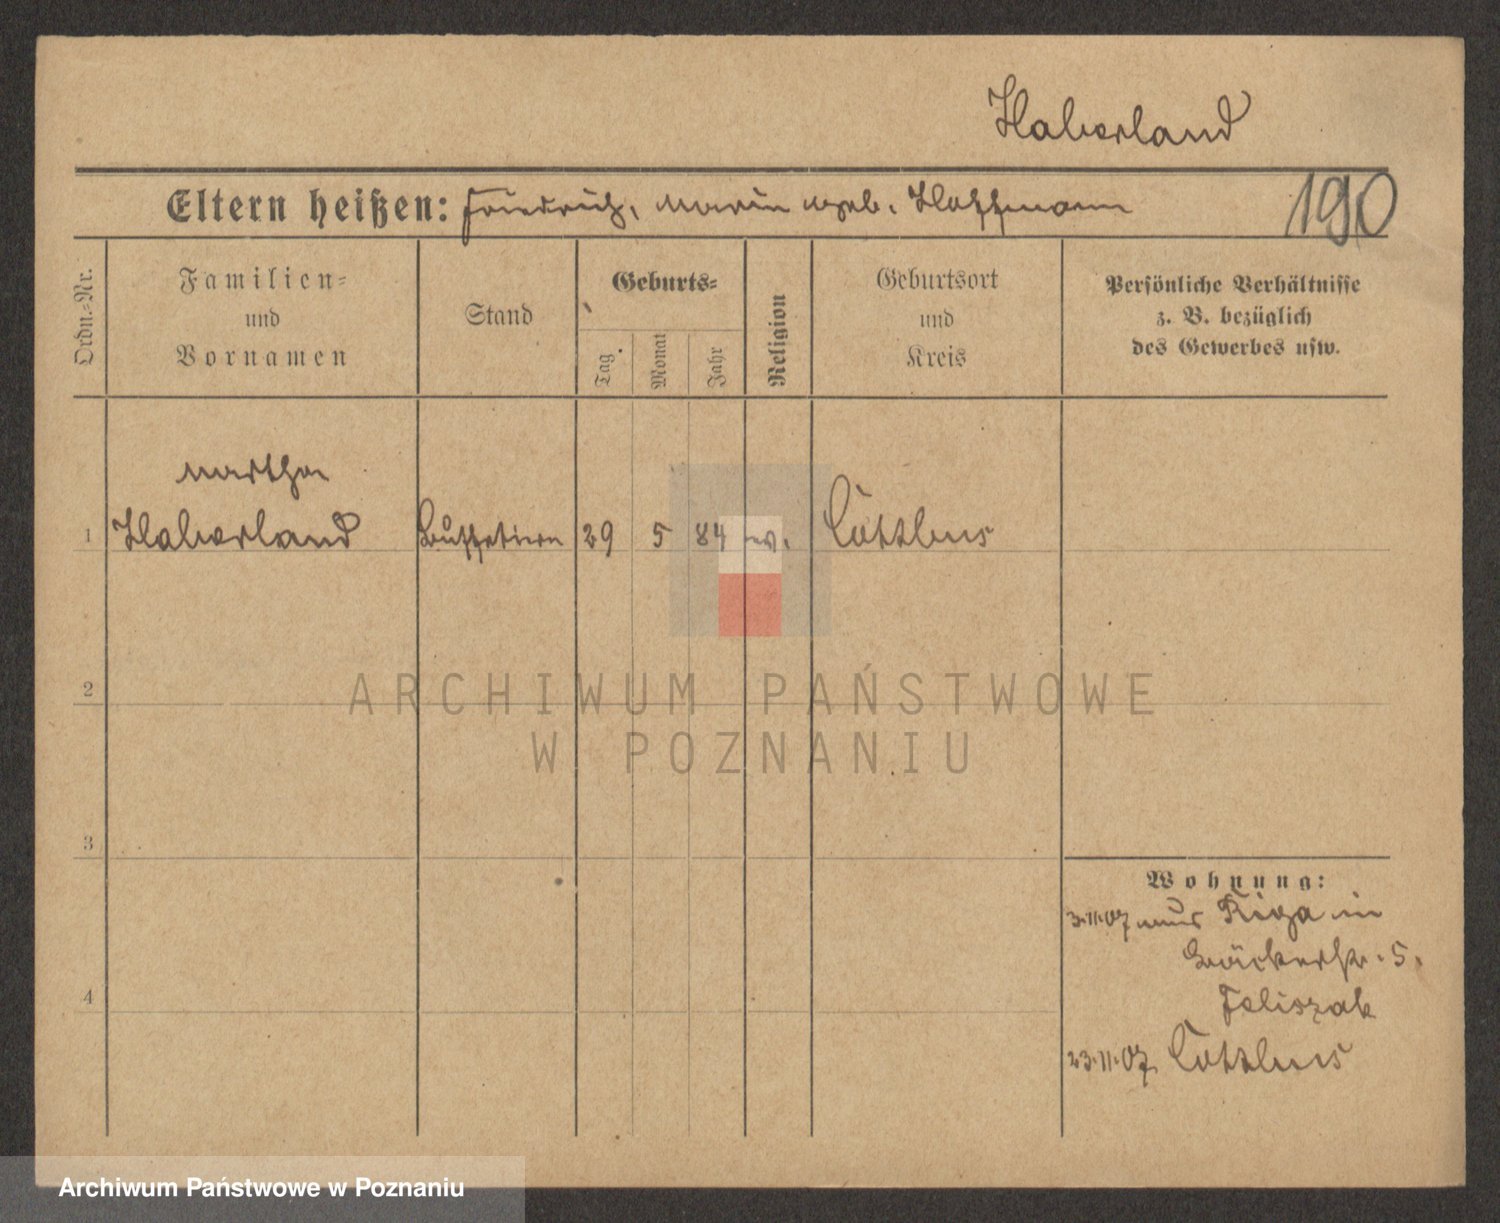 Haberland
Eltern heißen: Friedrich, Marie geb. Hoffmann 190
Ordn.-Nr.
Familien-
und
Vornamen
Stand
Geburts-
Tag
Monat
Jahr
Religion
Geburtsort
und
Kreis
Persönliche Verhältnisse
z. B. bezüglich
des Gewerbes usw.
Martha
1 Haberland Buffetiere 29 5 84 ev. Cottbus
2
ARCHIWUM PAŃSTWOWE
W POZNANIU
3
Wohnung:
3.11.07 aus Riga in
Bäckerstr. 5.
4
Feliszak
23.11.07 Cottbus
Archiwum Państwowe w Poznaniu